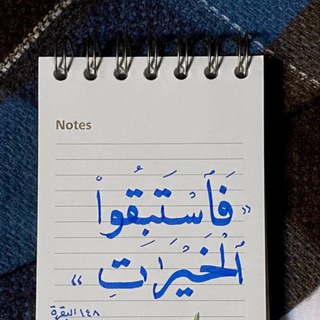 Notes
«فَٱسْتَبِقُوا۟
ٱلْخَيْرَٰتِ»
١٤٨ البقرة